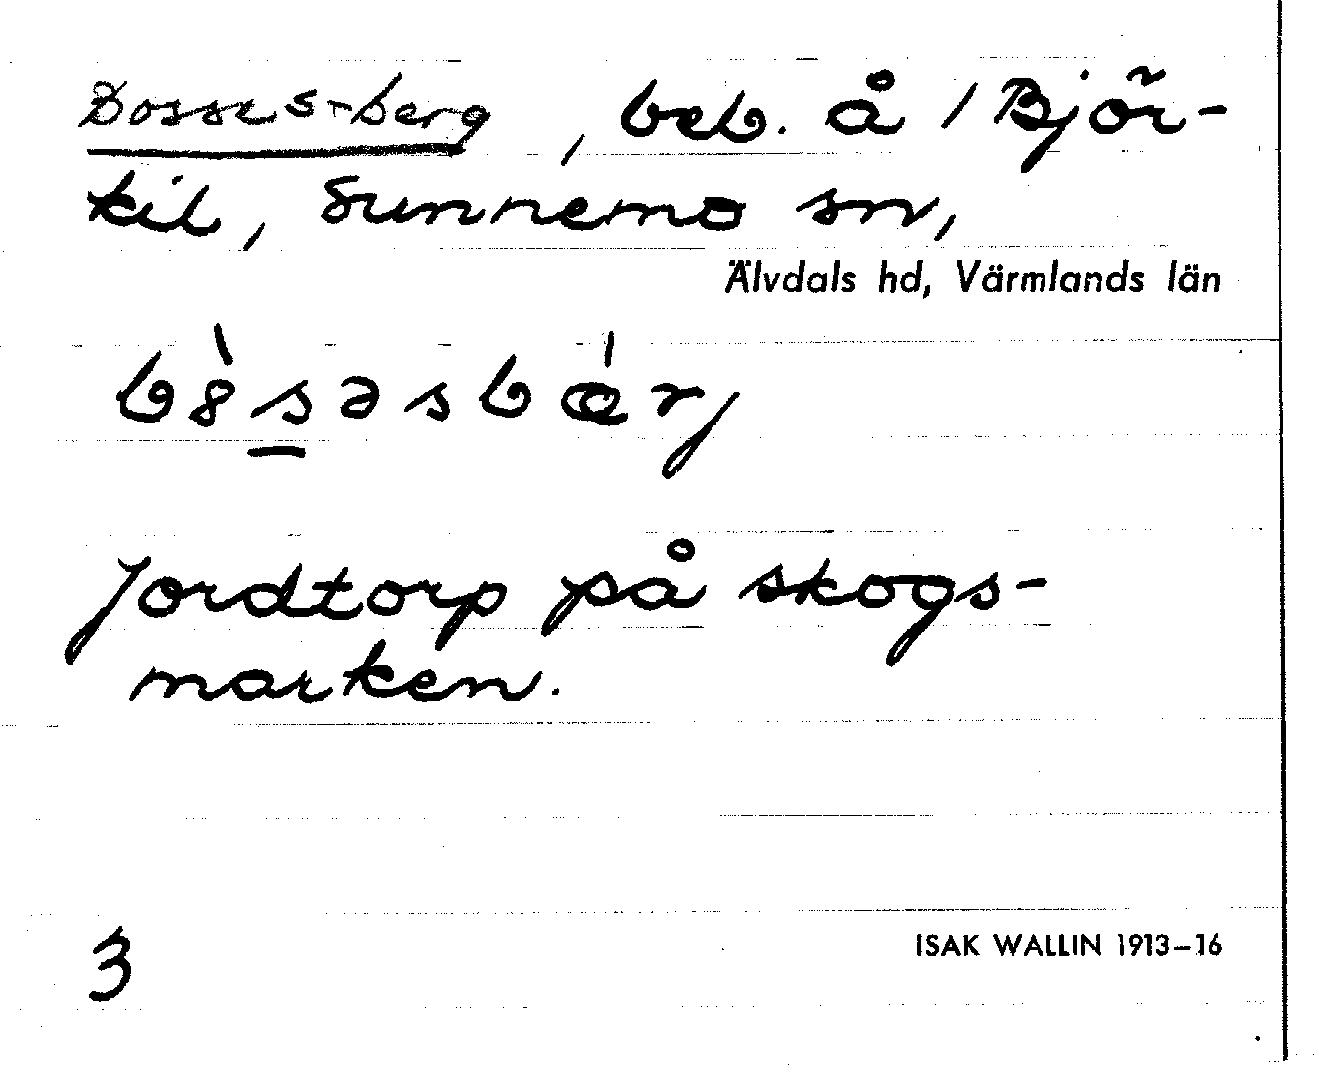 Bosses-berg, beb. å 1 Björ-
kil, Sunnemo sn,
Älvdals hd, Värmlands län
b8̀s̲əsbǽrj
Jordtorp på skogs-
marken.
3
ISAK WALLIN 1913–16